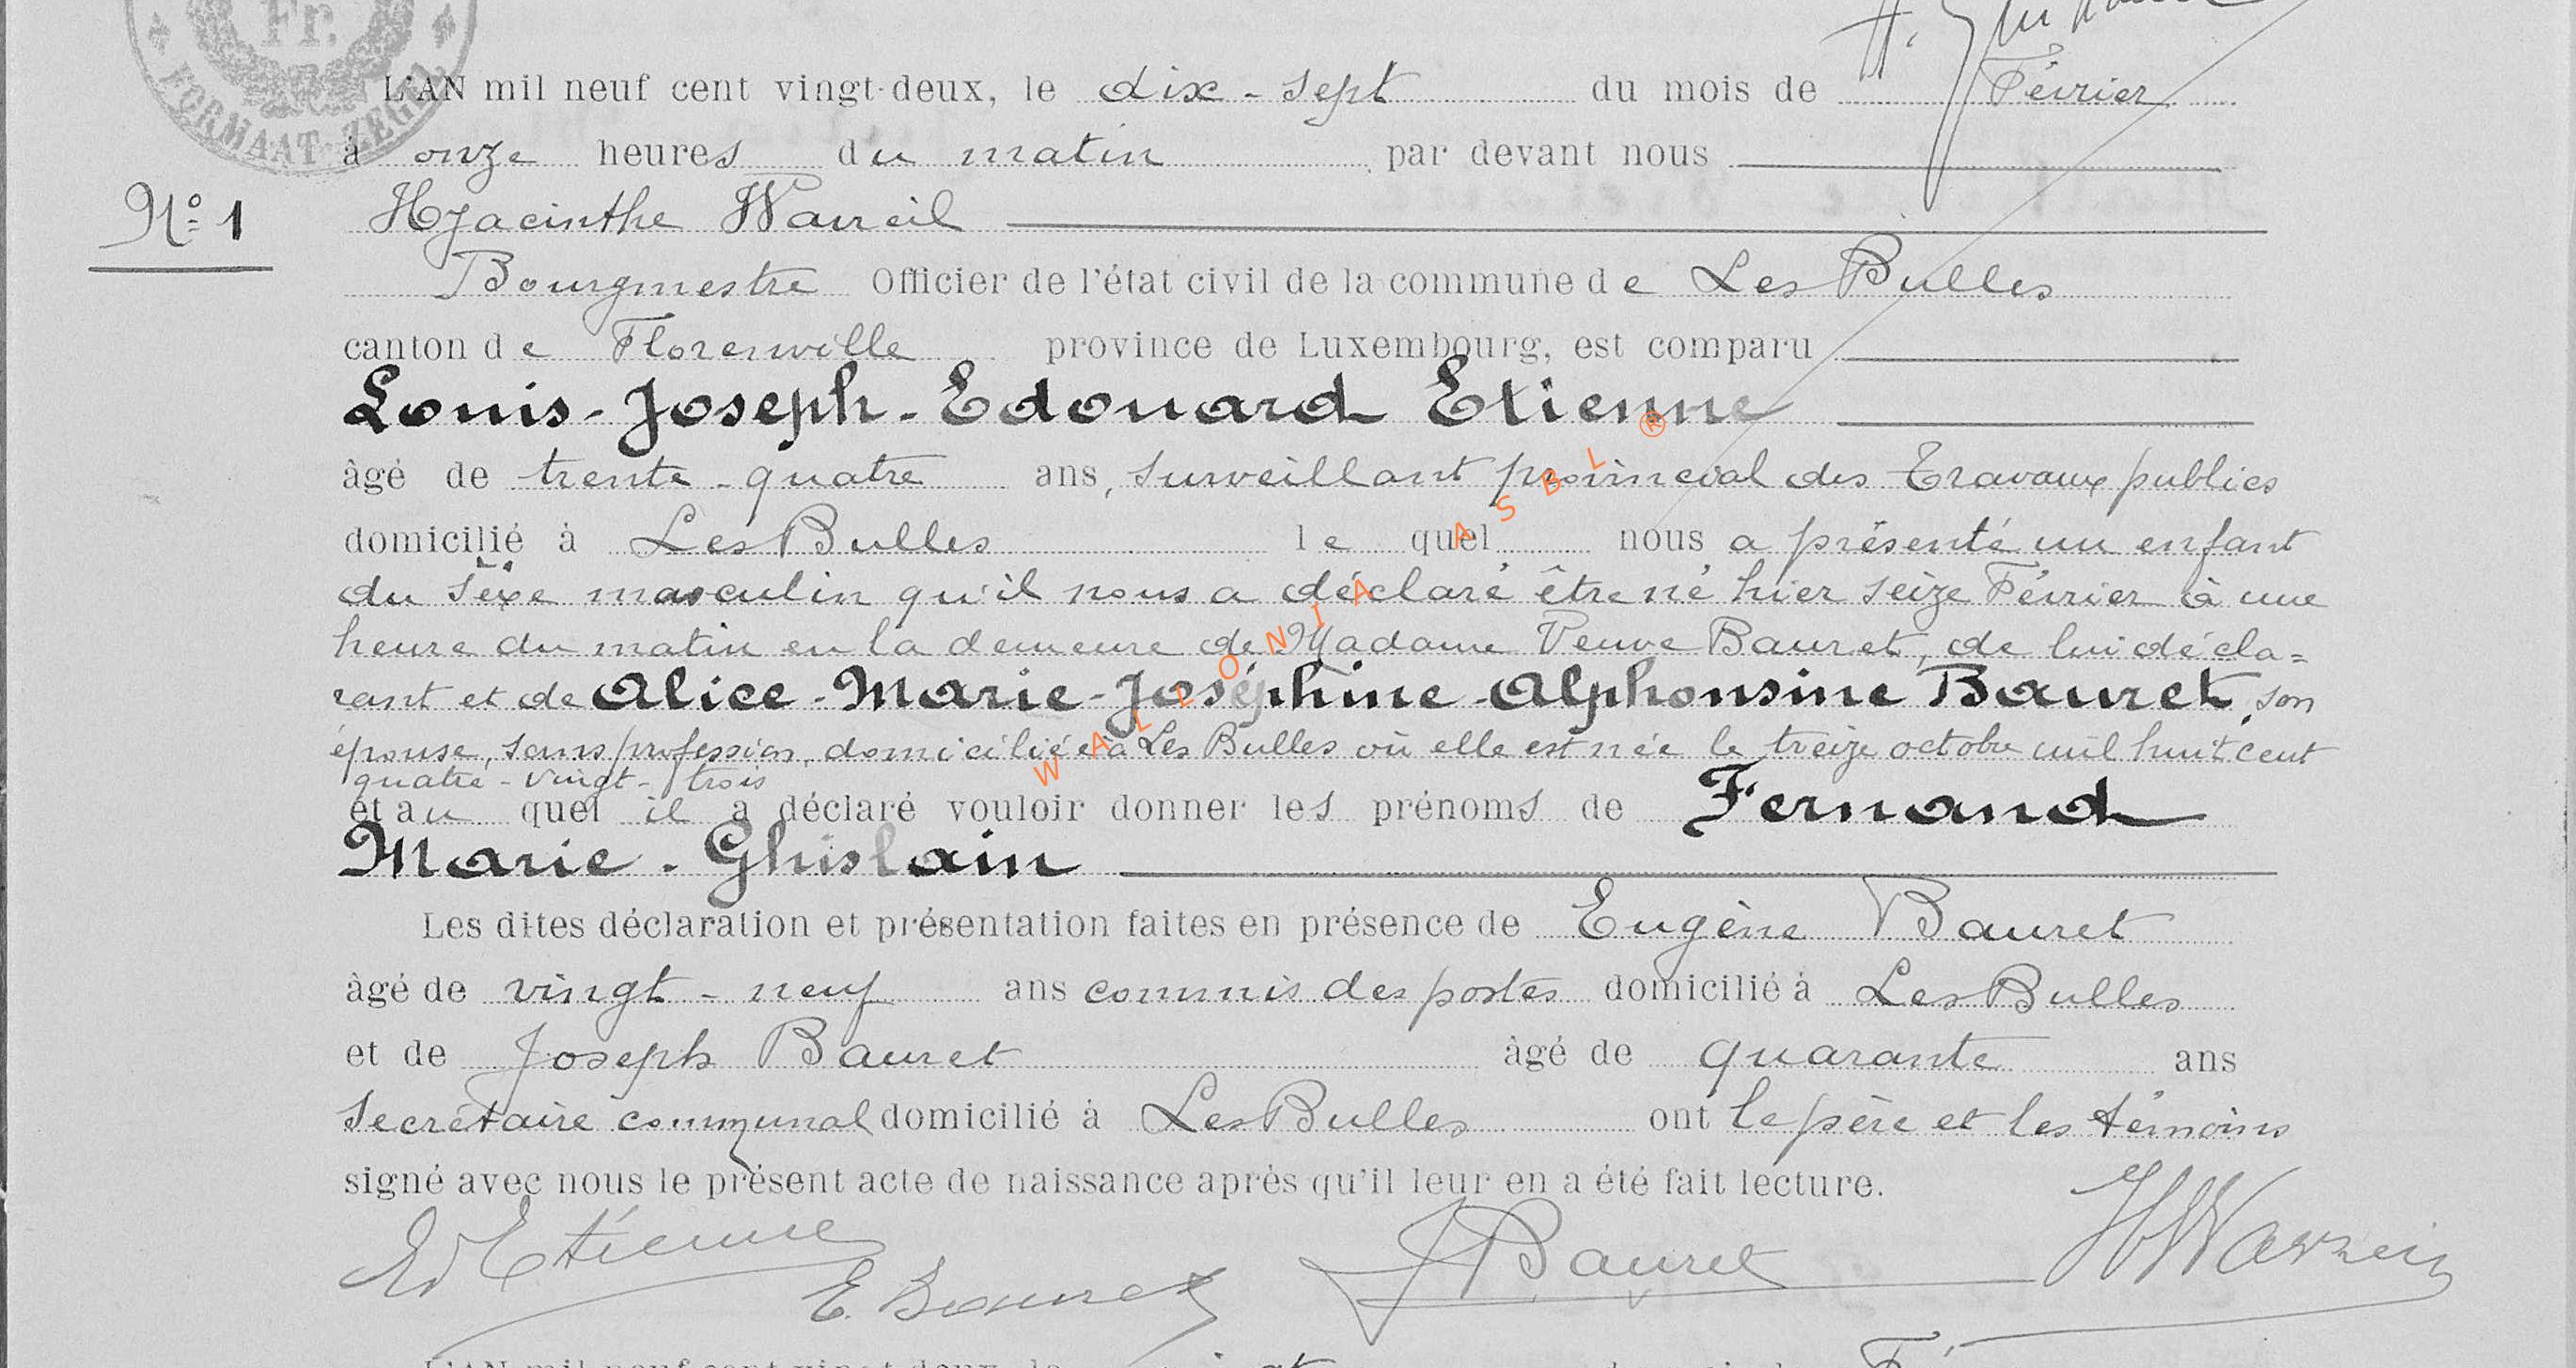 Fr.
FORMAAT-ZEGEL
L'AN mil neuf cent vingt-deux, le dix-sept du mois de Février
à onze heures du matin par devant nous
Nº 1
Hyacinthe Warzeil
Bourgmestre Officier de l'état civil de la commune de Les Bulles
canton de Florenville province de Luxembourg, est comparu
Louis-Joseph-Edouard Etienne
âgé de trente-quatre ans, surveillant provincial des Travaux publics
domicilié à Les Bulles lequel nous a présenté un enfant
du sexe masculin qu'il nous a déclaré être né hier seize Février à une
heure du matin en la demeure de Madame Veuve Bauret, de lui décla=
rant et de Alice-Marie-Joséphine-Alphonsine Bauret, son
épouse, sans profession, domiciliée à Les Bulles où elle est née le treize octobre mil huit cent
quatre-vingt-trois
et auquel il a déclaré vouloir donner les prénoms de Fernand
Marie-Ghislain
Les dites déclaration et présentation faites en présence de Eugène Bauret
âgé de vingt-neuf ans commis des postes domicilié à Les Bulles
et de Joseph Bauret âgé de quarante ans
secrétaire communal domicilié à Les Bulles ont le père et les témoins
signé avec nous le présent acte de naissance après qu'il leur en a été fait lecture.
Ed Etienne
E. Bauret
J Bauret
WALLONIA ASBL ®